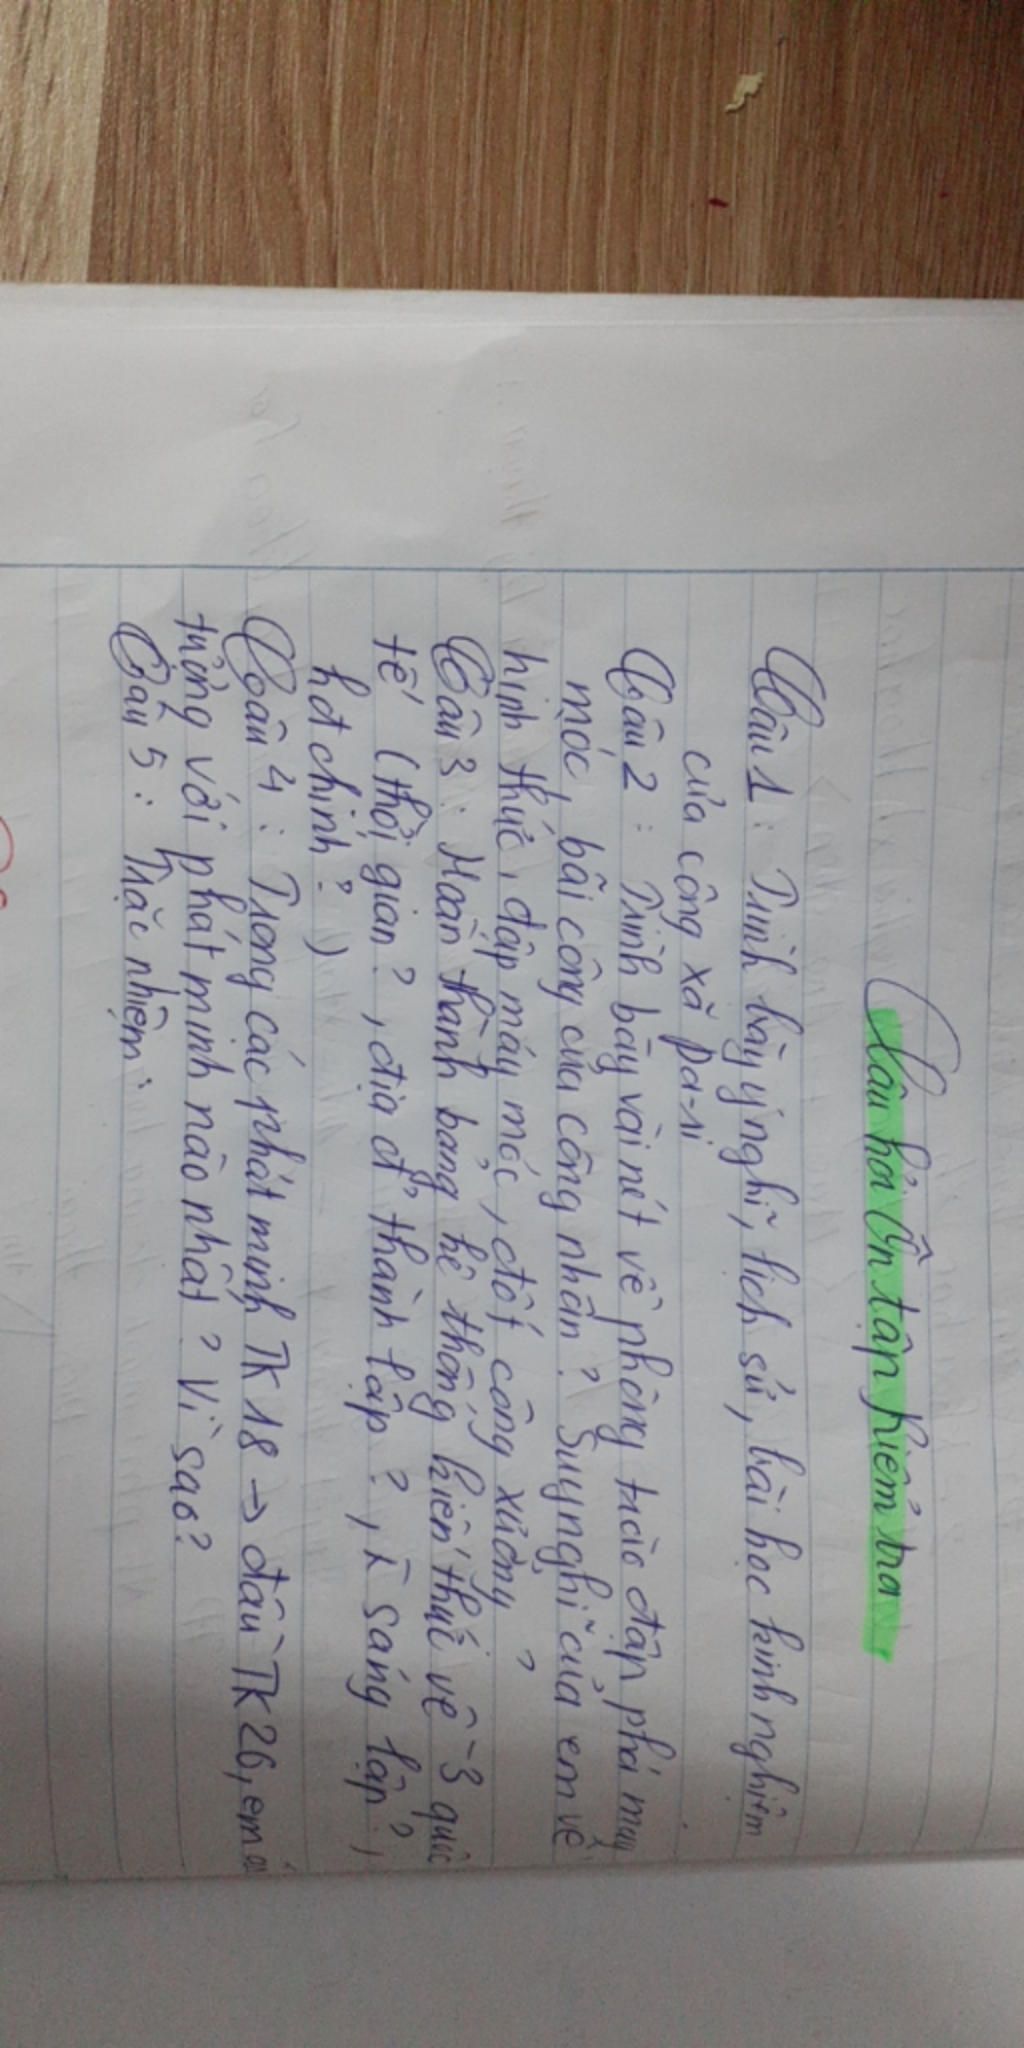 Câu hỏi Ôn tập kiểm tra
Câu 1: Trình bày ý nghĩ, lịch sử, bài học kinh nghiệm
của công xã pa-ri
Câu 2: Trình bày vài nét về phong trào đập phá máy
móc, bãi công của công nhân? Suy nghĩ của em về
hình thức, đập máy móc, đốt công xưởng?
Câu 3: Hoàn thành bảng hệ thống kiến thức về 3 quốc
tế (thời gian?, địa đ' thành lập?, ng sáng lập?,
hđ chính?)
Câu 4: Trong các phát minh TK 18 → đầu TK 20, em ấn
tượng với phát minh nào nhất? Vì sao?
Câu 5: Trắc nhiệm